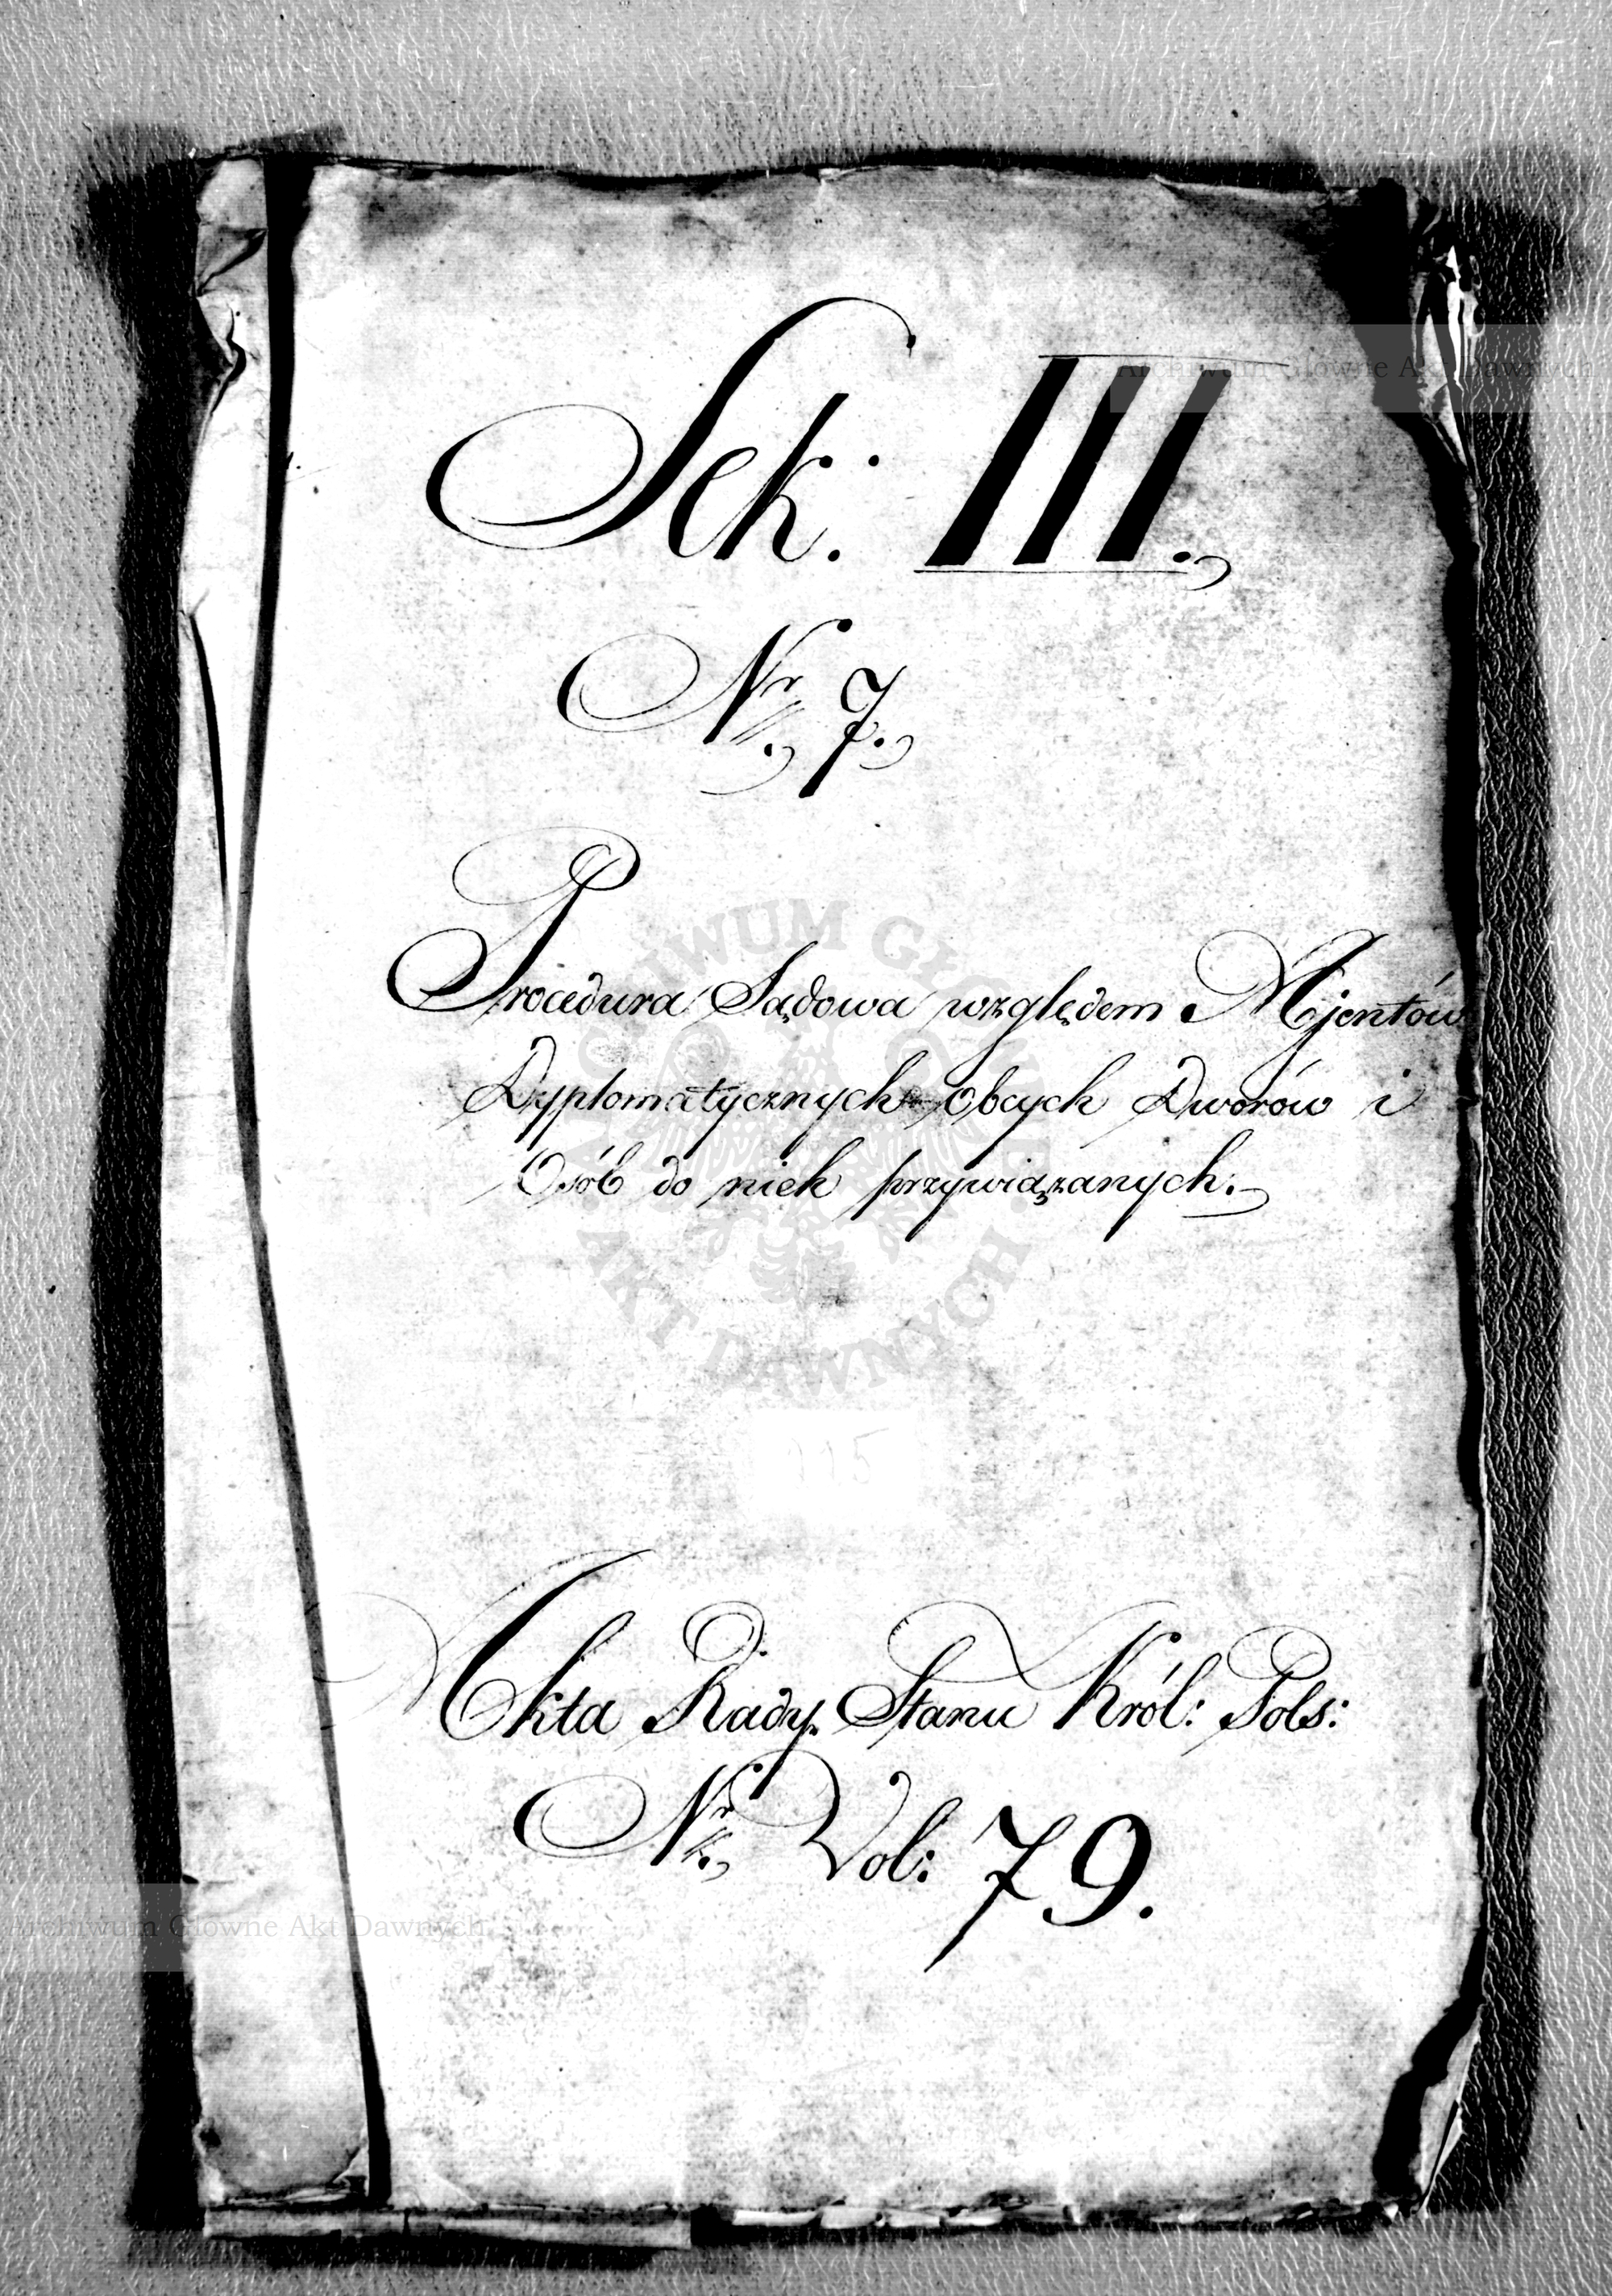 Sek: III.
Nr. 7.
Procedura Sądowa względem Ajentów
Dyplomatycznych obcych Dworów i
Osób do nich przywiązanych.
115
Akta Rady Stanu Król: Pols:
Nr. Vol: 79.
Archiwum Główne Akt Dawnych
Archiwum Główne Akt Dawnych
ARCHIWUM GŁÓWNE AKT DAWNYCH